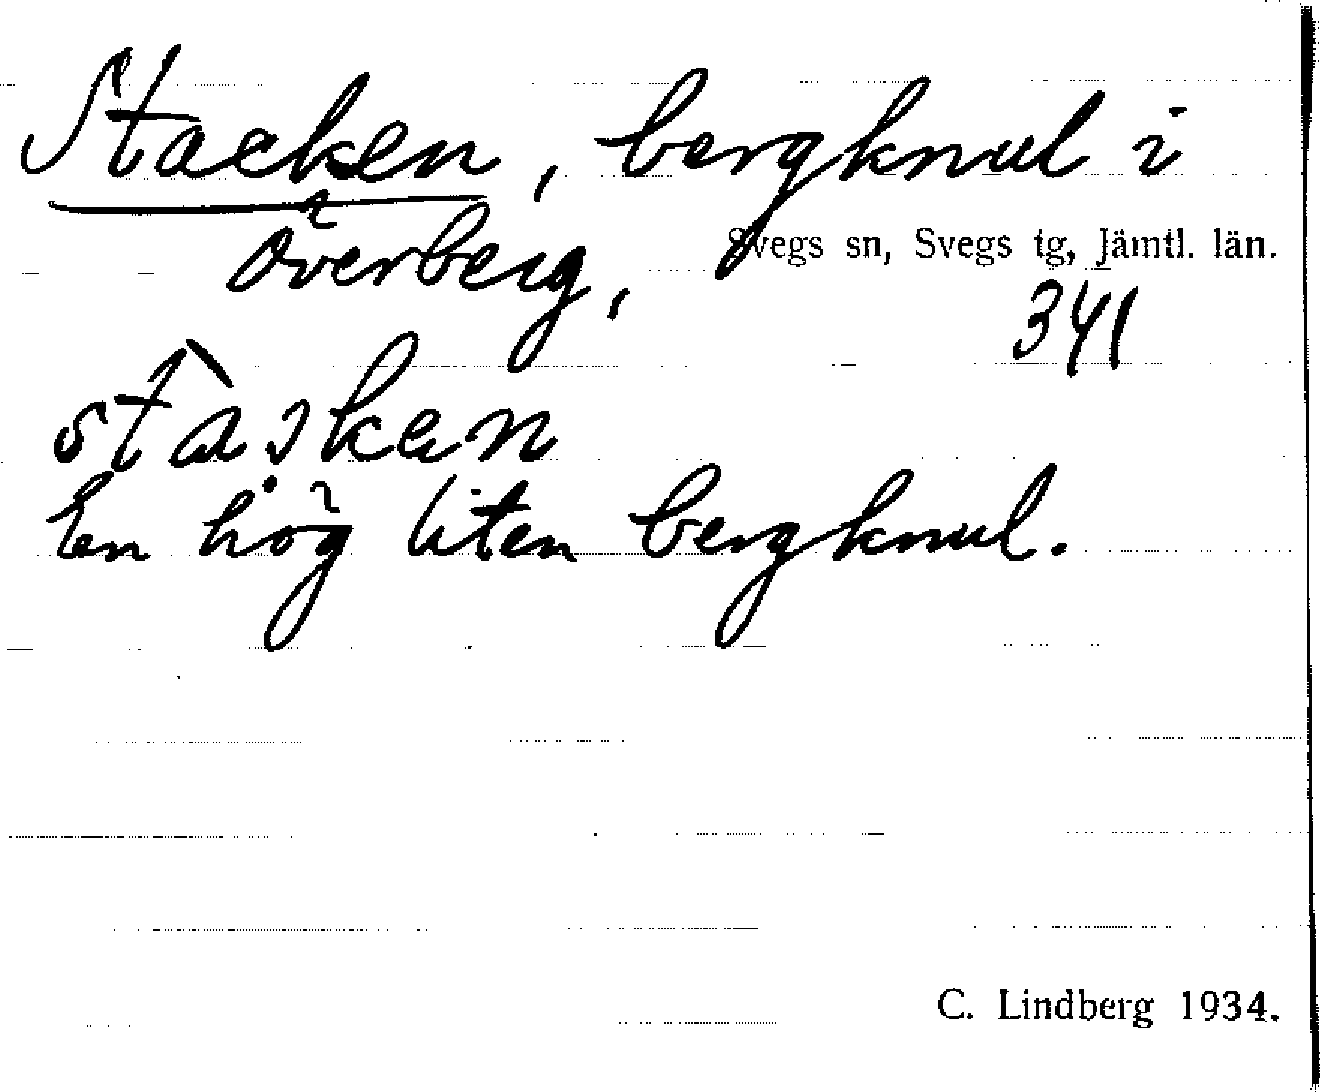 Stacken, bergknul i
Överberg, Svegs sn, Svegs tg, Jämtl. län.
341
En hög liten bergknul.
C. Lindberg 1934.